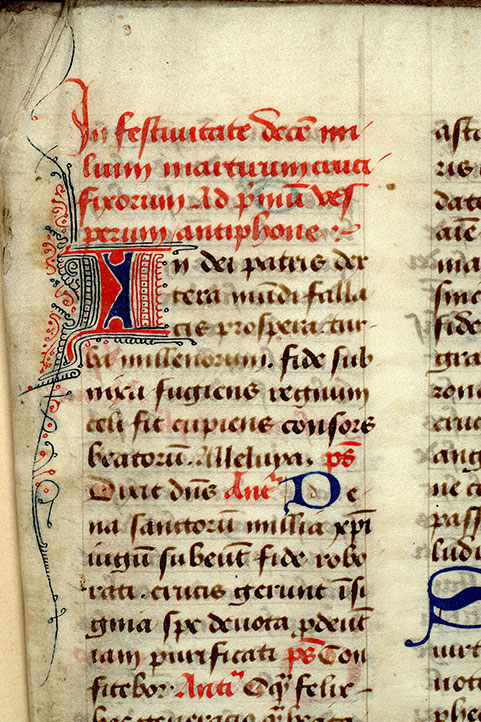 In festivitate decē mi
lium martirum cruci
fixorum Ad p̄mū ves
perum antiphone
In dei patris dex
tera mūdi falla
cis prospera tur
ba millenorum. fide sub
nixa fugiens regnum
celi fit cupiens consors
beatorū. Alleluya. ps̄
Dixit dn̄s Añ De
na sanctorū millia xp̄i
iugū subeūt fide robo
rati. crucis gerunt īsi
gnia spe devota p̄deūt
iam purificati ps̄ Con
fitebor. Antī O q̄ felix
hec generacio
asta
ris
data
aīe
ma
sinc
fide
gra
cruc
ang
ne c
pass
ludi
S
vota
phe